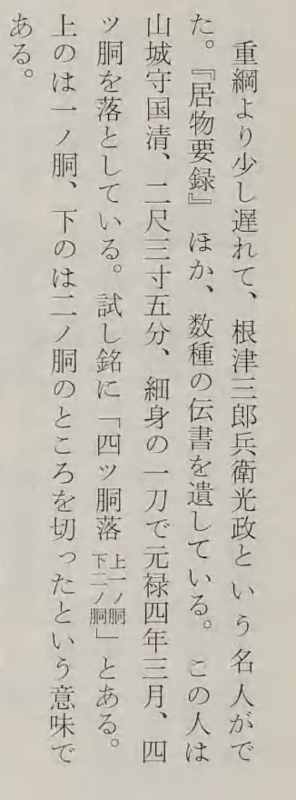 重綱より少し遅れて、根津三郎兵衛光政という名人がで
た。『居物要録』ほか、数種の伝書を遺している。この人は
山城守国清、二尺三寸五分、細身の一刀で元禄四年三月、四
ツ胴を落としている。試し銘に「四ツ胴落上一ノ胴下二ノ胴」とある。
上のは一ノ胴、下のは二ノ胴のところを切ったという意味で
ある。